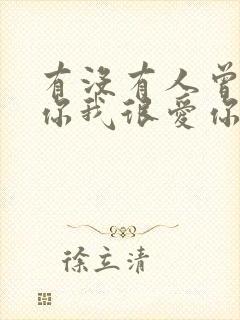 有没有人曾
你我很爱你
徐立清